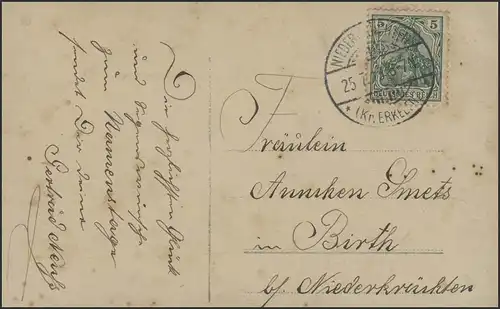 Die herzlichsten Glück
und Segenswünsche
zum Namenstage
sendet Dir Deine
Gertrud
NIEDER
25
* (Kr. ERKELENZ)
5
DEUTSCHES REICH
Fräulein
Anncken Smets
in Birth
b/ Niederkrüchten